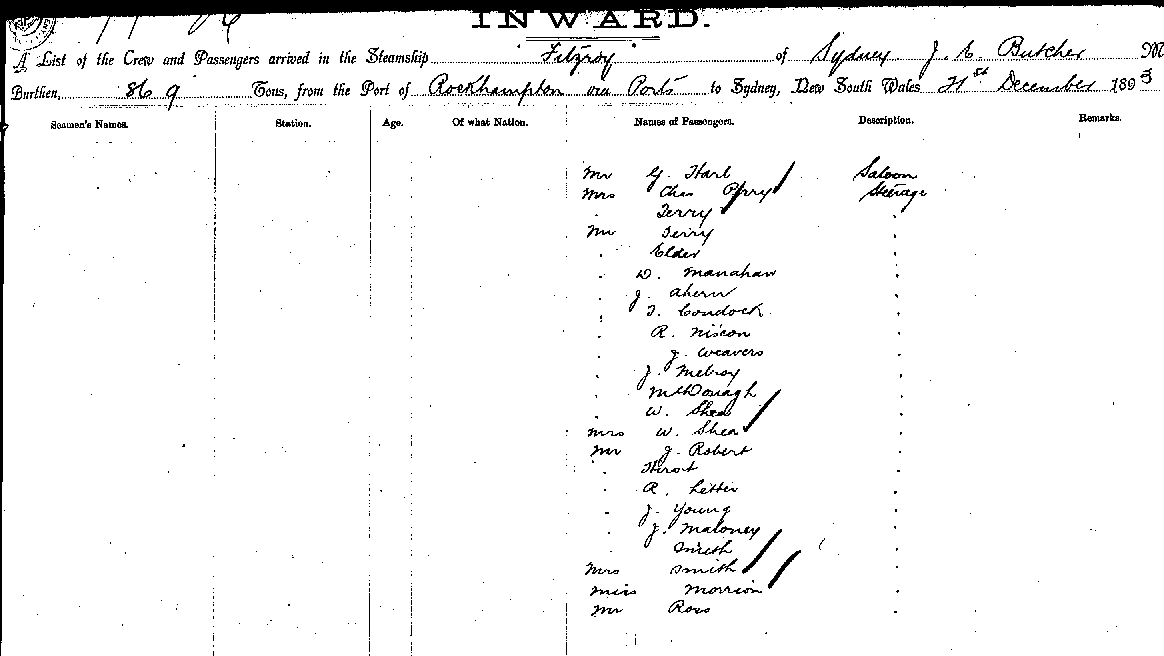 INWARD.
A List of the Crew and Passengers arrived in the Steamship "Fitzroy" of Sydney J. E. Butcher M
Burthen, 869 Tons, from the Port of Rockhampton via Ports to Sydney, New South Wales 21st December 1893
Seamen's Names. Station. Age. Of what Nation. Names of Passengers. Description. Remarks.
Mr G. Harl Saloon
Mrs Chas Perry Steerage
" Terry "
Mr Terry "
" Elder "
" D. Manahan "
" J. Ahern "
" T. Condock "
" R. "
" J. Weavers "
" J. "
" McDonagh "
" W. Shea "
Mrs W. Shea "
Mr J. Robert "
" "
" R. "
" J. Young "
" J. Maloney "
" Smith "
Mrs Smith "
Miss "
Mr Ross "